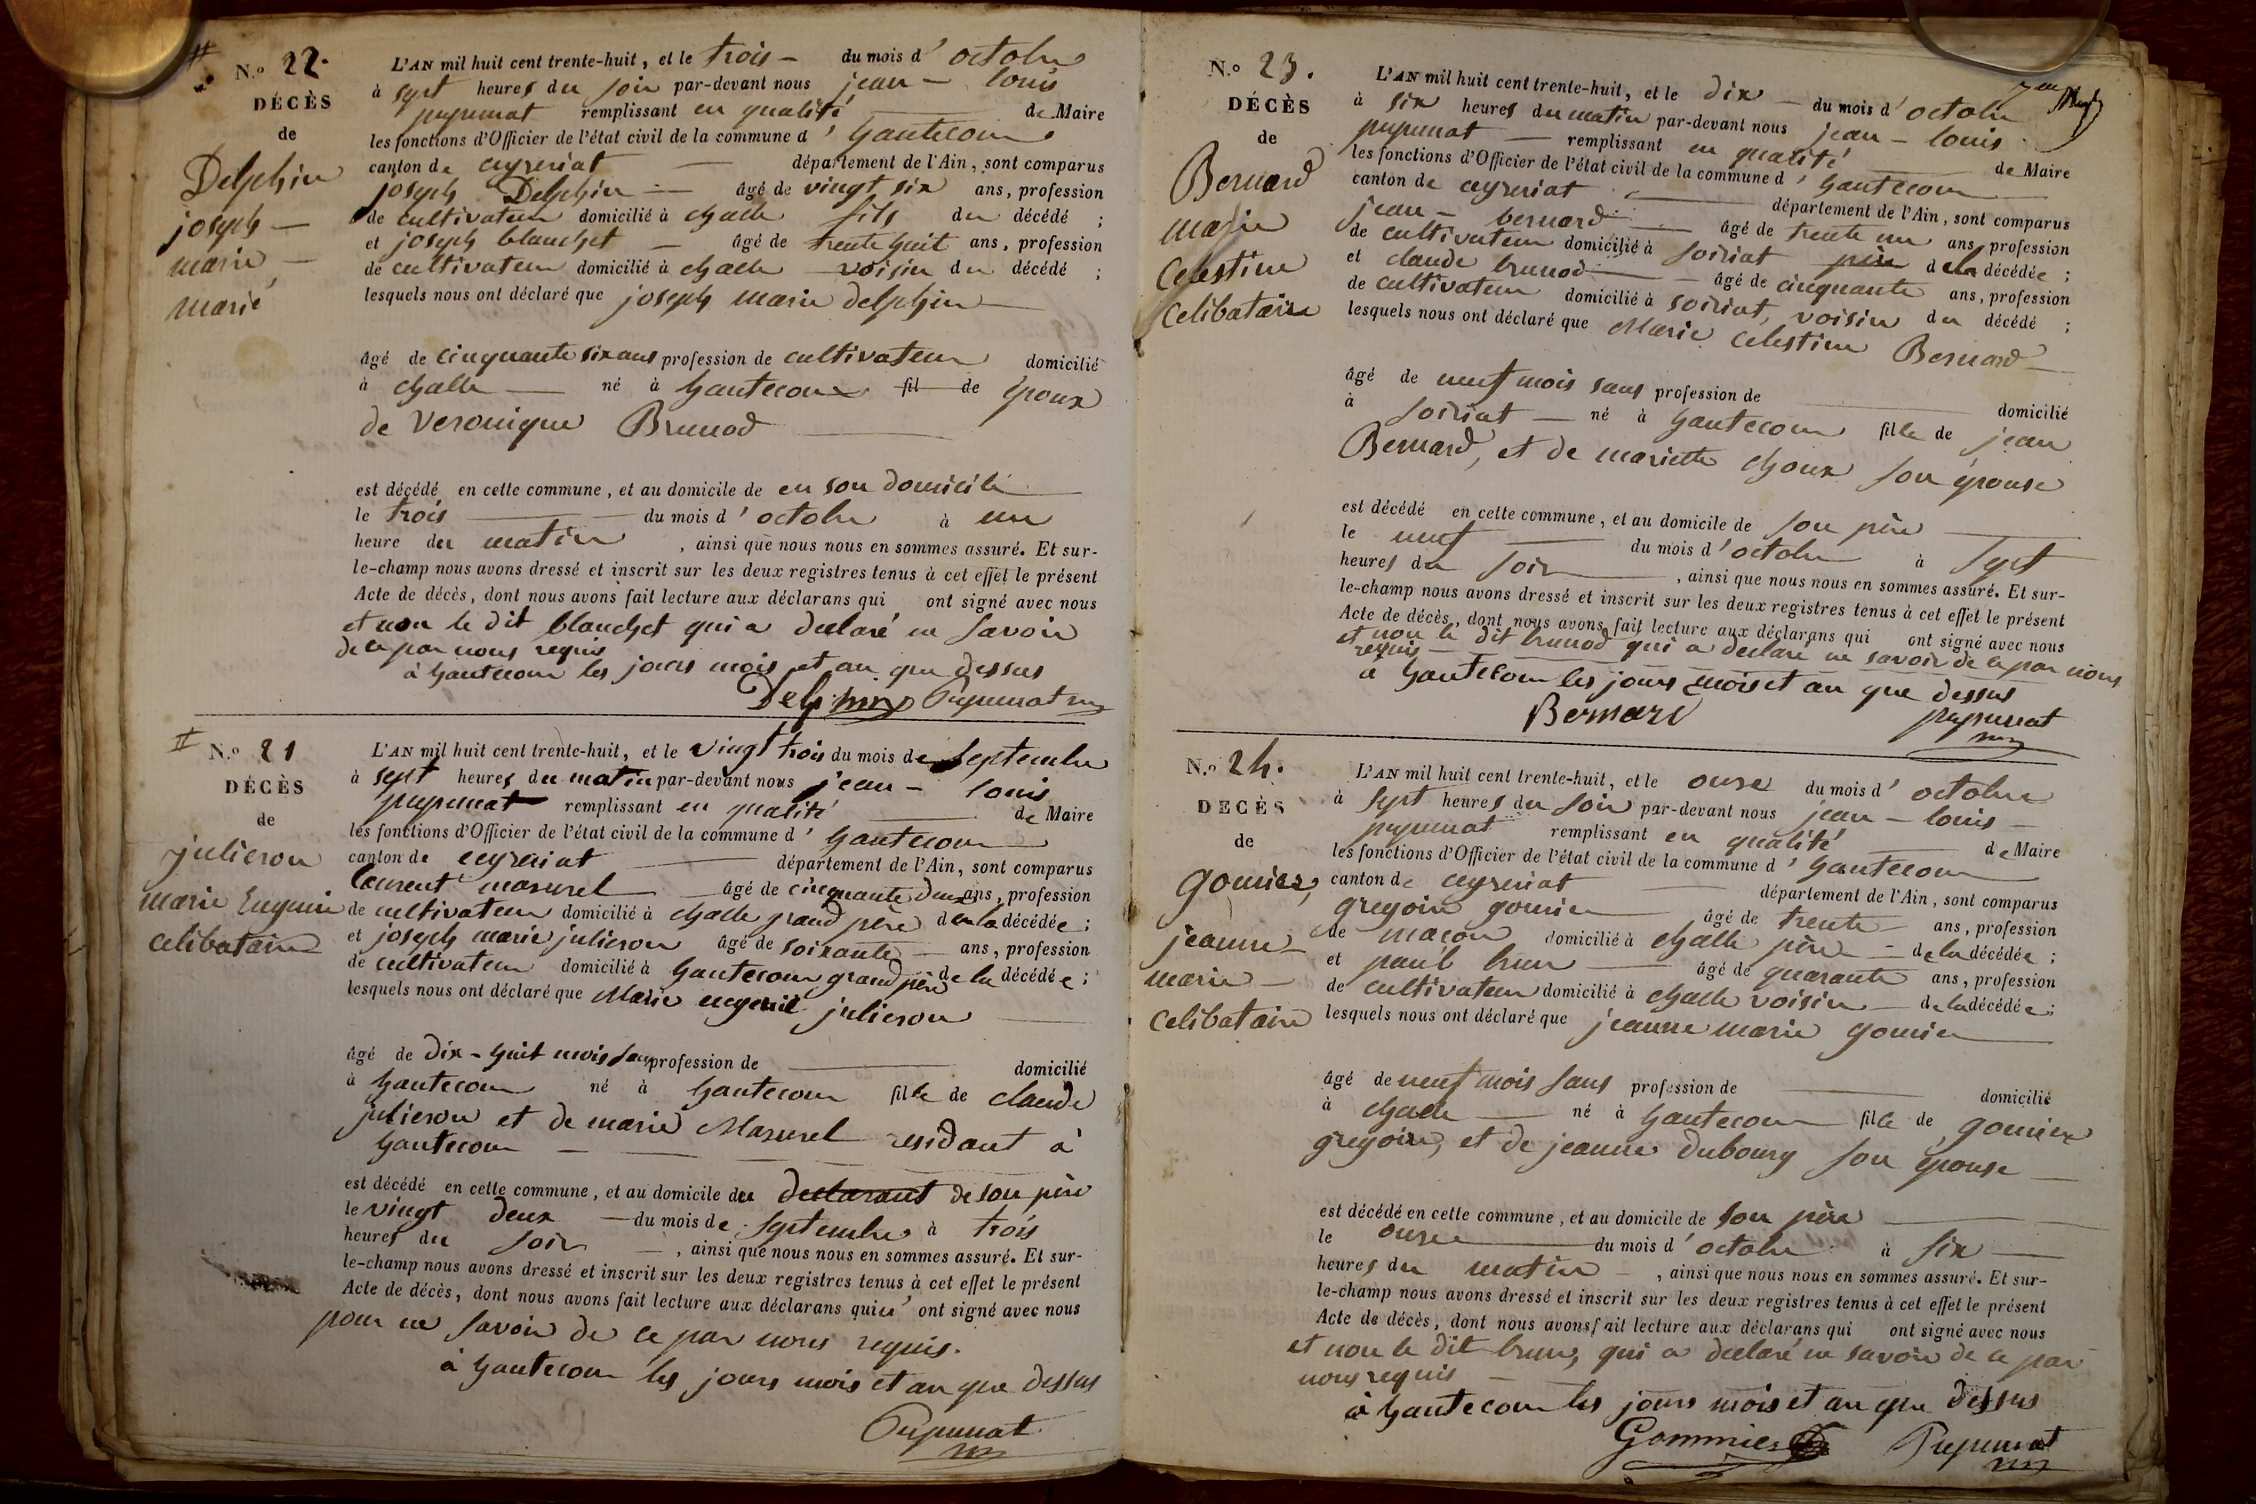 N.o 22.
DÉCÈS
de
Delphin
joseph —
marie —
marié
L'AN mil huit cent trente-huit, et le trois — du mois d' octobre
à sept heures du soir par-devant nous jean — louis
pupunat remplissant en qualité de Maire
les fonctions d'Officier de l'état civil de la commune d' hautecour
canton de ceyzeriat — département de l'Ain, sont comparus
joseph Delphin — âgé de vingt six ans, profession
de cultivateur domicilié à challe fils du décédé ;
et joseph blanchet — âgé de trente huit ans, profession
de cultivateur domicilié à challe voisin du décédé ;
lesquels nous ont déclaré que joseph marie delphin —
âgé de cinquante six ans profession de cultivateur domicilié
à challe — né à hautecour fil de époux
de veronique Brunod —
est décédé en cette commune, et au domicile de en son domicile
le trois — du mois d' octobre à une
heure du matin , ainsi que nous nous en sommes assuré. Et sur-
le-champ nous avons dressé et inscrit sur les deux registres tenus à cet effet le présent
Acte de décès, dont nous avons fait lecture aux déclarans qui ont signé avec nous
et non le dit blanchet qui a declaré ne savoir
de ce par nous requis
à hautecour les jours mois et an que dessus
Delphin Pupunat
N.o 21
DÉCÈS
de
julieron
marie Eugenie
celibataire
L'AN mil huit cent trente-huit, et le vingt trois du mois de septembre
à sept heures du matin par-devant nous jean — louis
pupunat remplissant en qualité — de Maire
les fonctions d'Officier de l'état civil de la commune d' hautecour
canton de ceyzeriat — département de l'Ain, sont comparus
laurent mazurel — âgé de cinquante deux ans, profession
de cultivateur domicilié à challe grand père de la décédée ;
et joseph marie julieron âgé de soixante — ans, profession
de cultivateur domicilié à hautecour grand père de la décédée ;
lesquels nous ont déclaré que Marie eugenie julieron —
âgé de dix-huit mois sans profession de — domicilié
à hautecour né à hautecour fille de claude
julieron et de marie Mazurel residant à
hautecour —
est décédé en cette commune, et au domicile du declarant de son père
le vingt deux — du mois de septembre à trois
heures du soir — , ainsi que nous nous en sommes assuré. Et sur-
le-champ nous avons dressé et inscrit sur les deux registres tenus à cet effet le présent
Acte de décès, dont nous avons fait lecture aux déclarans qui n' ont signé avec nous
pour ne savoir de ce par nous requis.
à hautecour les jours mois et an que dessus
Pupunat
N.o 23.
DÉCÈS
de
Bernard
marie
celestine
celibataire
L'AN mil huit cent trente-huit, et le dix — du mois d' octobre
à six heures du matin par-devant nous jean — louis
pupunat — remplissant en qualité — de Maire
les fonctions d'Officier de l'état civil de la commune d' hautecour
canton de ceyzeriat — département de l'Ain, sont comparus
jean — bernard — âgé de trente un ans, profession
de cultivateur domicilié à soiriat père de la décédée ;
et claude brunod — âgé de cinquante ans, profession
de cultivateur domicilié à soiriat, voisin du décédé ;
lesquels nous ont déclaré que Marie celestine Bernard —
âgé de neuf mois sans profession de — domicilié
à soiriat — né à hautecour fille de jean
Bernard, et de mariette choux son épouse
est décédé en cette commune, et au domicile de son père —
le neuf — du mois d' octobre à sept
heures du soir — , ainsi que nous nous en sommes assuré. Et sur-
le-champ nous avons dressé et inscrit sur les deux registres tenus à cet effet le présent
Acte de décès, dont nous avons fait lecture aux déclarans qui ont signé avec nous
et non le dit brunod qui a declaré ne savoir de ce par nous
requis —
à hautecour les jours mois et an que dessus
Bernard pupunat
N.o 24.
DÉCÈS
de
gomier,
jeanne —
marie —
celibataire
L'AN mil huit cent trente-huit, et le onze du mois d' octobre
à sept heures du soir par-devant nous jean — louis —
pupunat remplissant en qualité — de Maire
les fonctions d'Officier de l'état civil de la commune d' hautecour
canton de ceyzeriat — département de l'Ain, sont comparus
gregoire gomier — âgé de trente — ans, profession
de maçon domicilié à challe père — de la décédée ;
et paul brun — âgé de quarante ans, profession
de cultivateur domicilié à challe voisin — de la décédée ;
lesquels nous ont déclaré que jeanne marie gomier —
âgé de neuf mois sans profession de — domicilié
à challe — né à hautecour fille de gomier
gregoire, et de jeanne dubourg son épouse —
est décédé en cette commune, et au domicile de son père —
le onze — du mois d' octobre à six —
heures du matin — , ainsi que nous nous en sommes assuré. Et sur-
le-champ nous avons dressé et inscrit sur les deux registres tenus à cet effet le présent
Acte de décès, dont nous avons fait lecture aux déclarans qui ont signé avec nous
et non le dit brun, qui a declaré ne savoir de ce par
nous requis —
à hautecour les jours mois et an que dessus
Gommier Pupunat